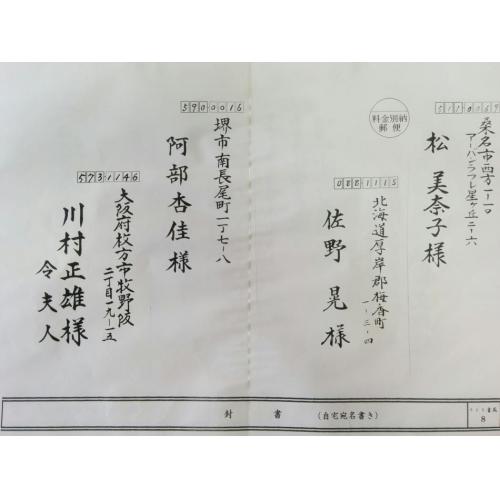 511006
桑名市西方一ノ一〇
アーバンラフレ星ヶ丘二ノ六
松 美奈子様
料金別納
郵便
0881115
北海道厚岸郡梅香町
一ー三ー四
佐野 晃様
5900016
堺市南長尾町一丁七ー八
阿部杏佳様
5731146
大阪府枚方市牧野阪
二丁目一九ー一五
川村正雄様
令夫人
封 書 (自宅宛名書き)
8